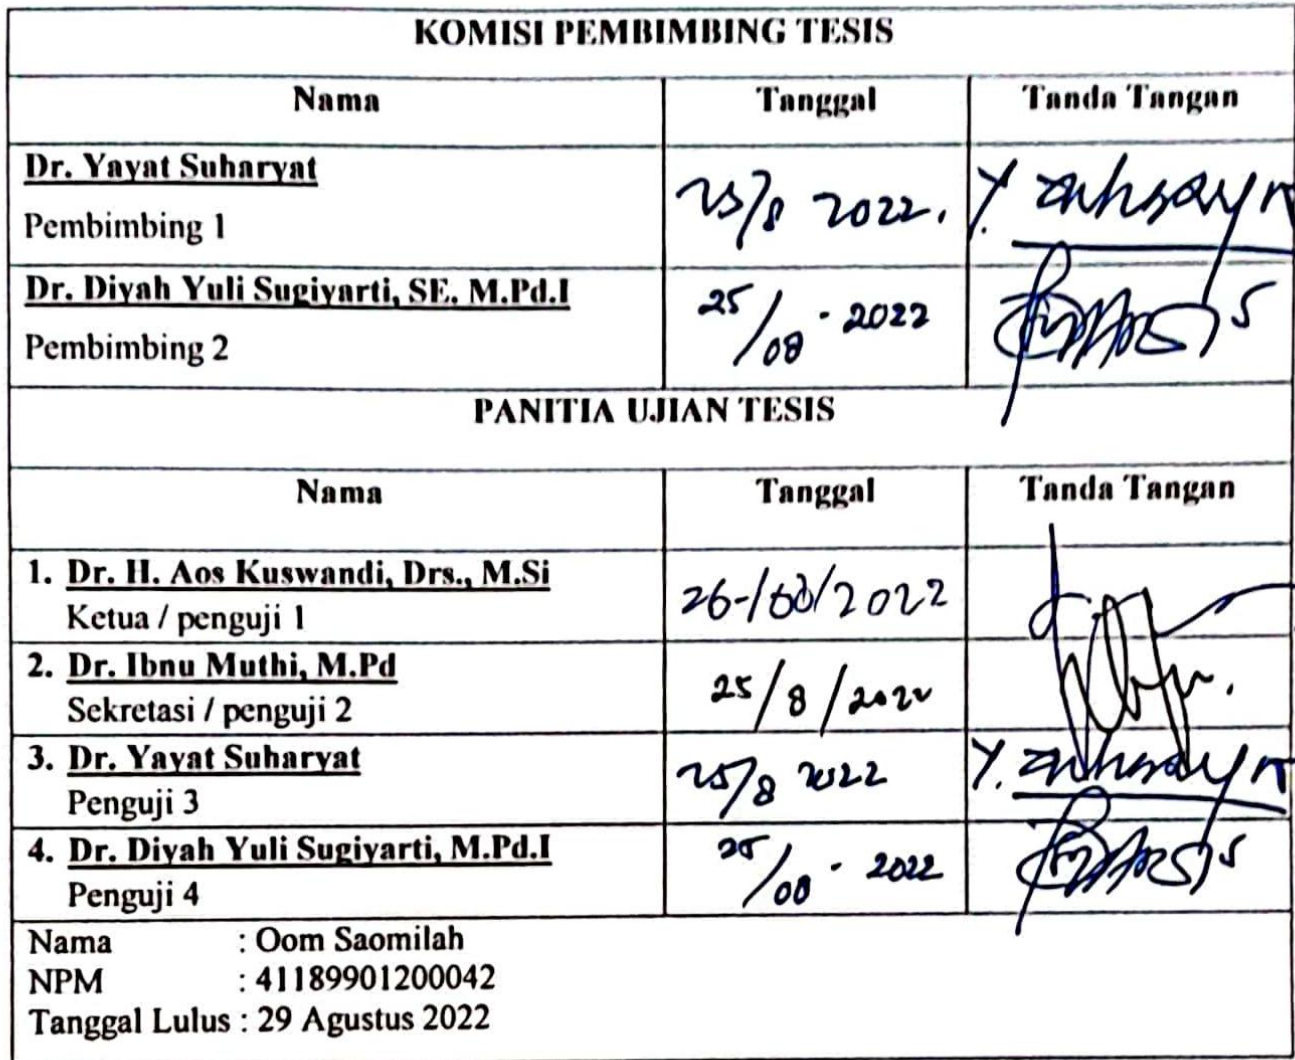 KOMISI PEMBIMBING TESIS
Nama Tanggal Tanda Tangan
Dr. Yayat Suharyat
Pembimbing 1
25/8 2022.
Dr. Diyah Yuli Sugiyarti, SE. M.Pd.I
Pembimbing 2
25/08 - 2022
PANITIA UJIAN TESIS
Nama Tanggal Tanda Tangan
1. Dr. H. Aos Kuswandi, Drs., M.Si
Ketua / penguji 1
26-/08/2022
2. Dr. Ibnu Muthi, M.Pd
Sekretasi / penguji 2
25/8/2022
3. Dr. Yayat Suharyat
Penguji 3
25/8 2022
4. Dr. Diyah Yuli Sugiyarti, M.Pd.I
Penguji 4
25/08 - 2022
Nama : Oom Saomilah
NPM : 41189901200042
Tanggal Lulus : 29 Agustus 2022